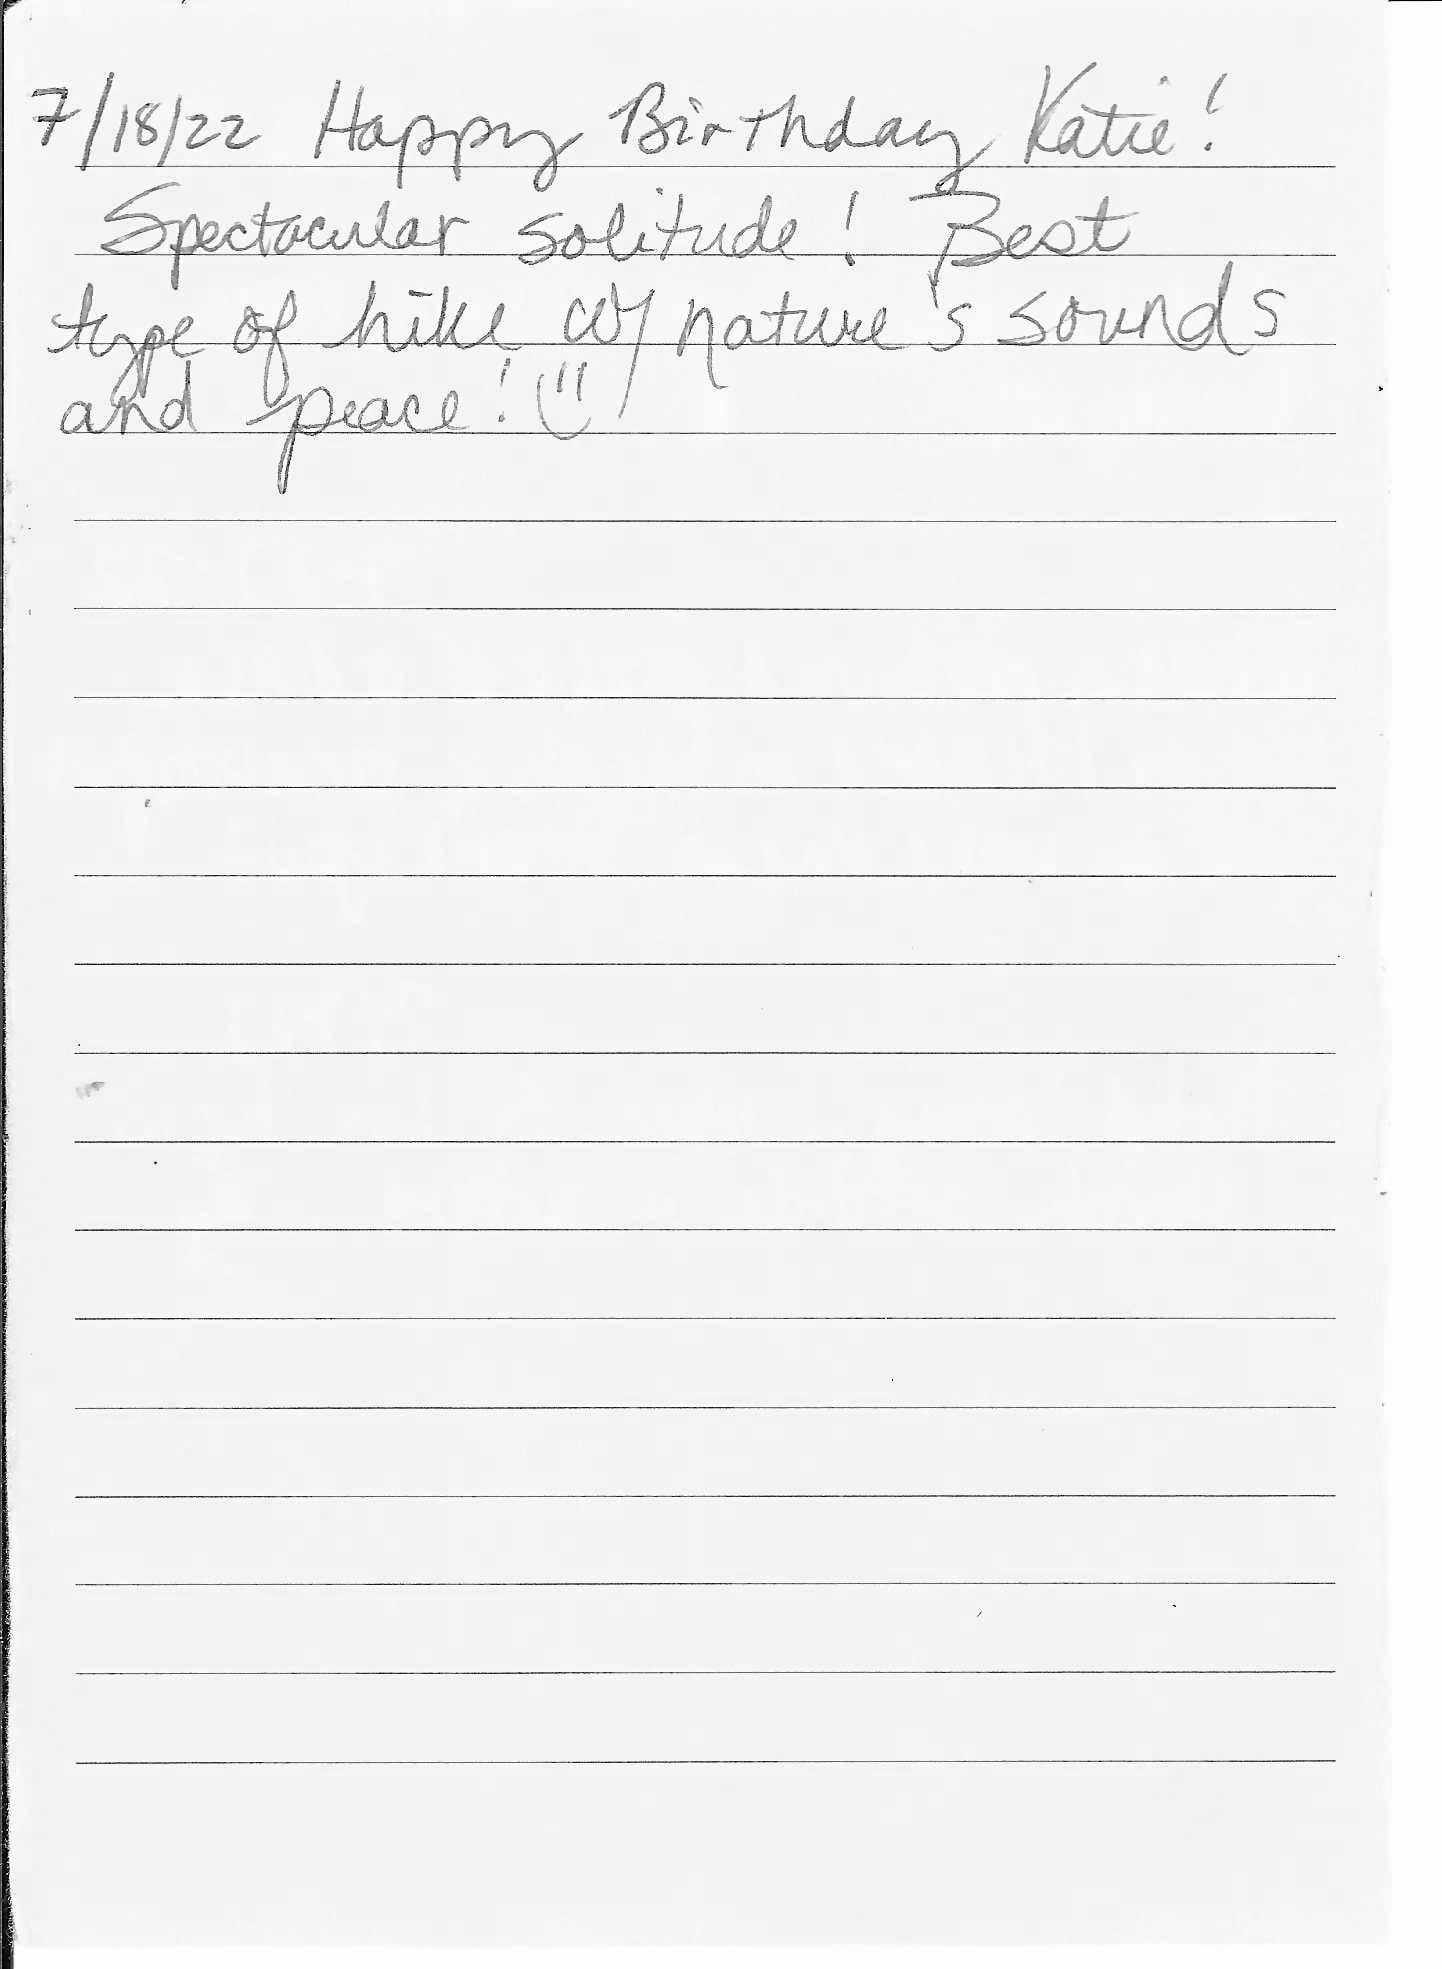 7/18/22 Happy Birthday Katie!
Spectacular solitude! Best
type of hike w/ nature's sounds
and peace! :)